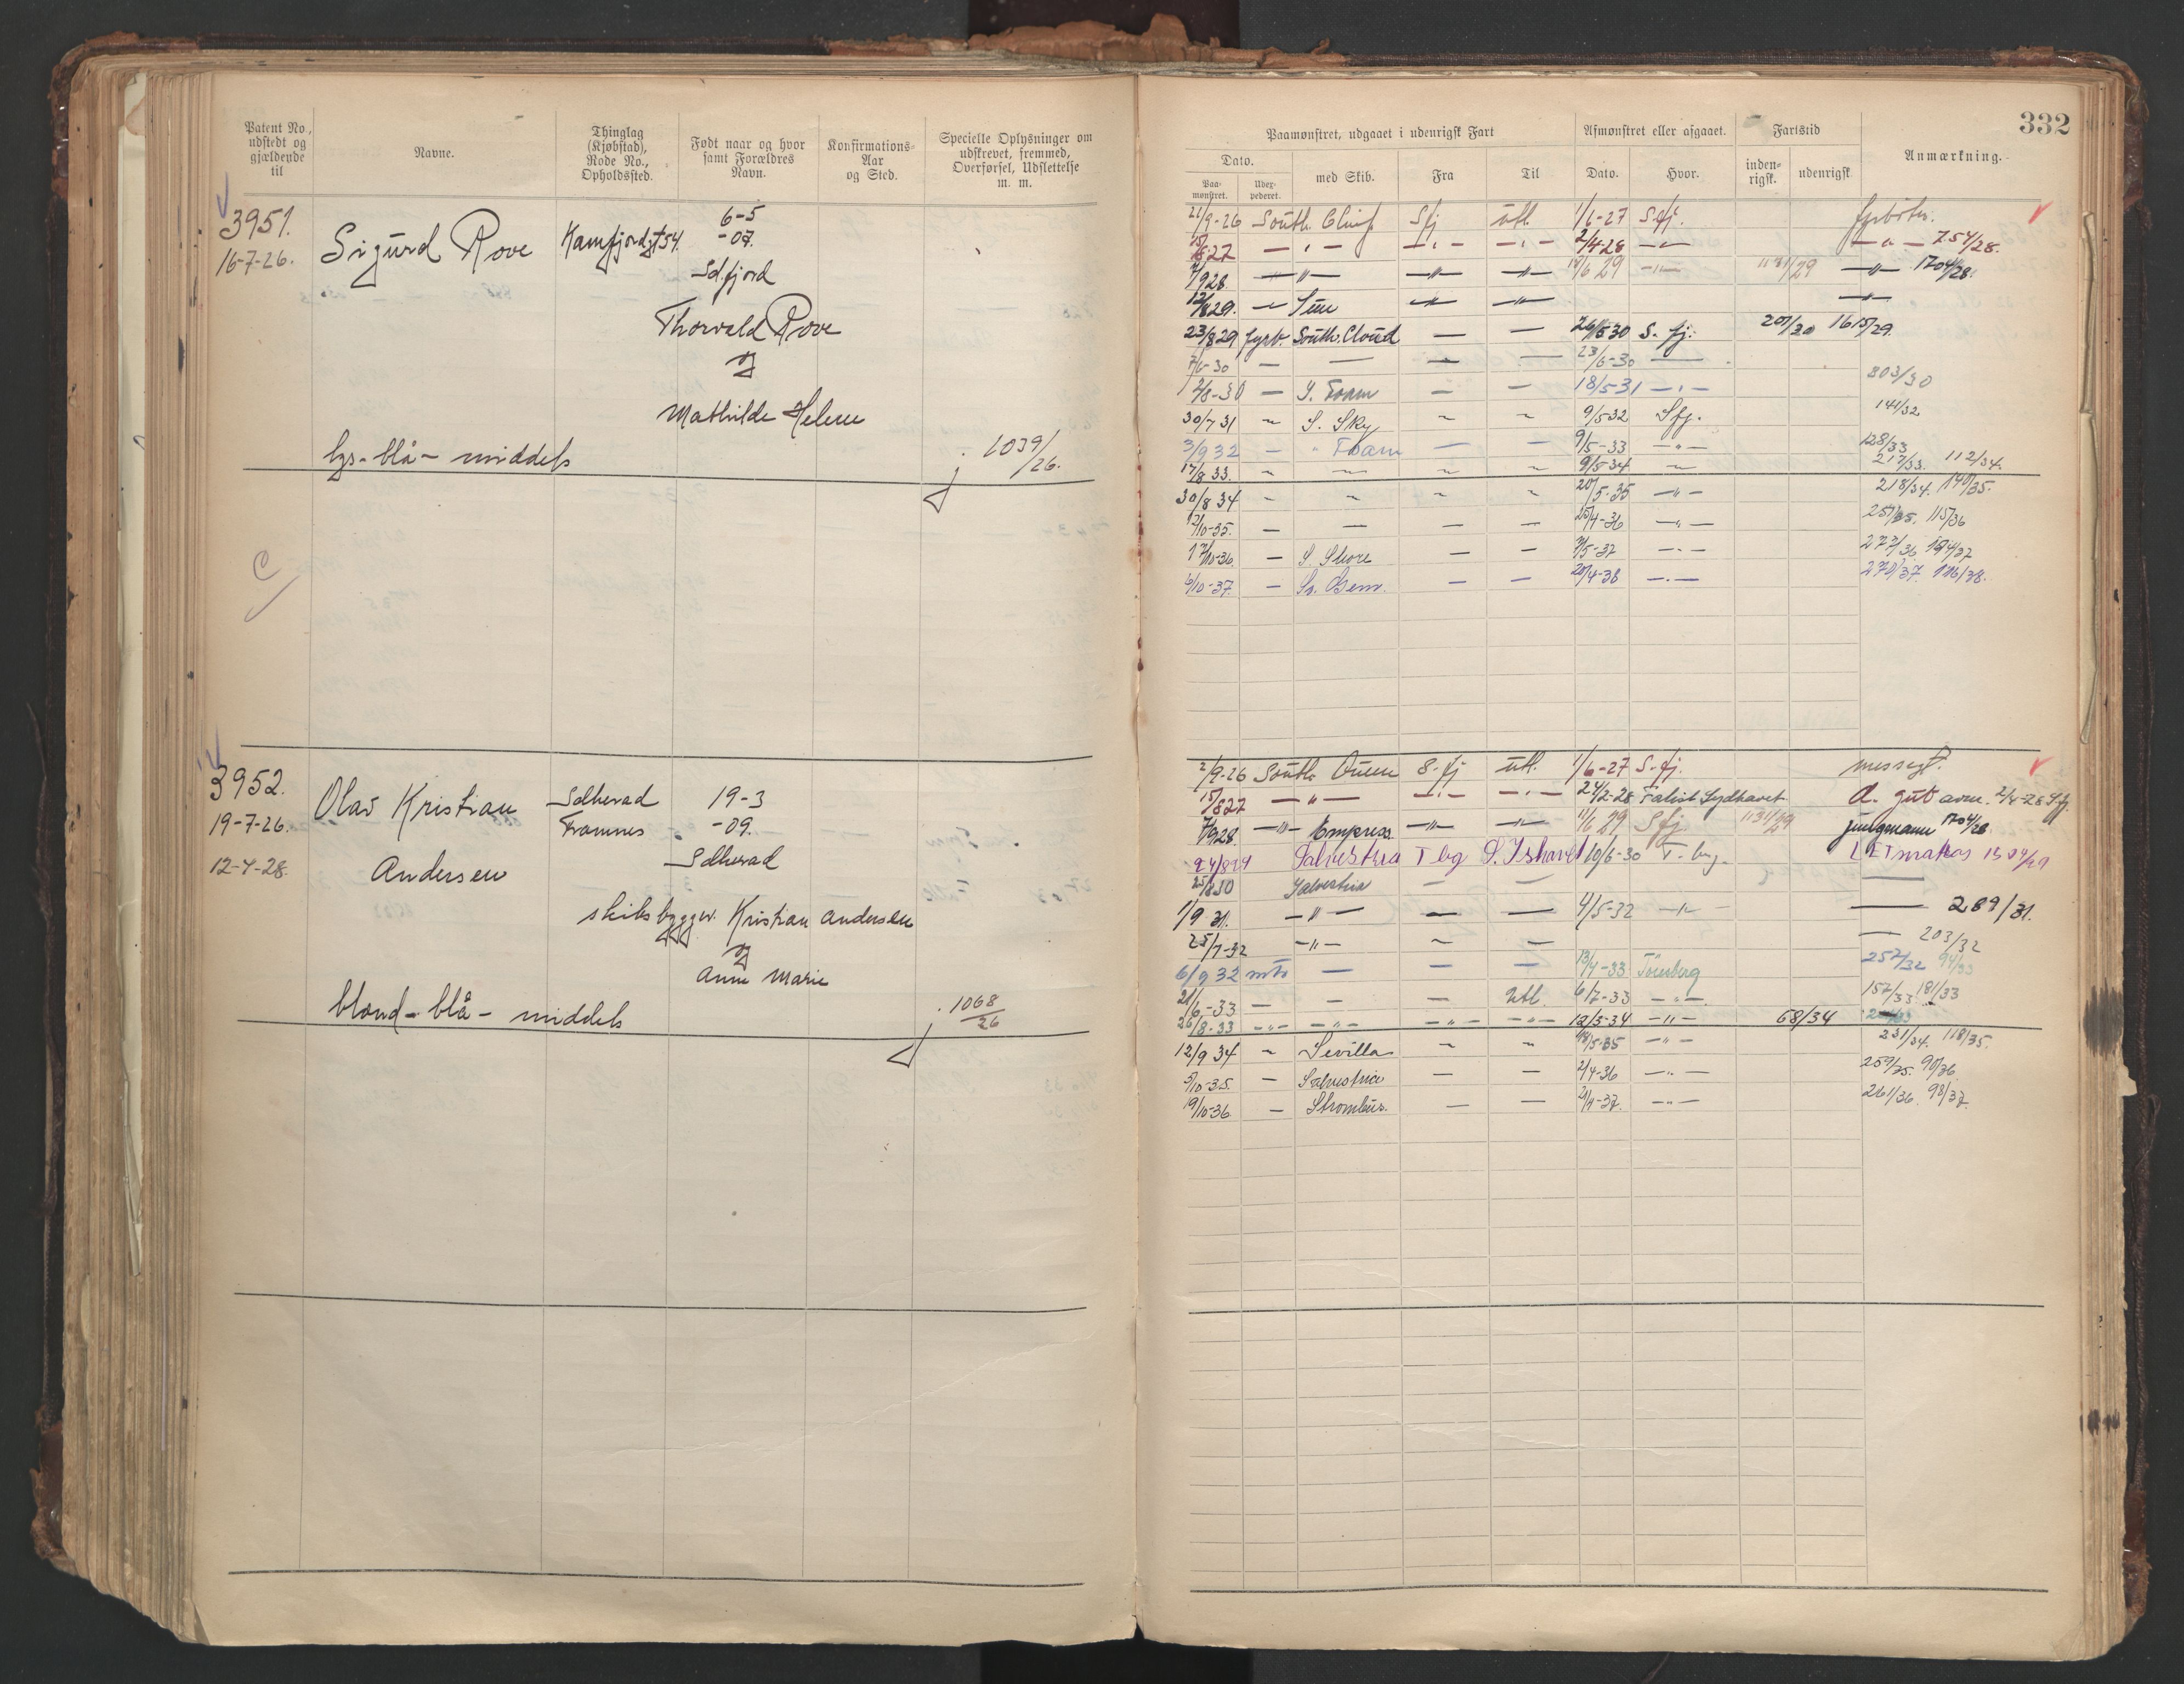 332
Patent No., udstedt og gjældende til
Navne.
Thinglag (Kjøbstad), Rode No., Opholdssted.
Født naar og hvor samt Forældres Navn.
Konfirmations- Aar og Sted.
Specielle Oplysninger om udskrevet, fremmed, Overførsel, Udslettelse m. m.
Paamønstret, udgaaet i udenrigsk Fart
Afmønstret eller afgaaet.
Fartstid
Anmærkning.
Dato.
Paa- mønstret.
Udex- pederet.
med Skib.
Fra
Til
Dato.
Hvor.
inden- rigsk.
udenrigsk
3951.
16-7-26.
Sigurd Rove
Kamfjordgt 54.
6-5
-07.
Sd.fjord
Thorvald Rove
og
Mathilde Helene
lys - blå - middels
1039/26.
South. Sfj utl. 1/6-27 S.fj. fyrbøter.
15/8 27 — " — — " — — " — 2/4-28 — " — — " — 754/28.
7/9 28 — " — — " — — " — 29 — " — 1131/29 — " — 1704/28.
12/8 29. — — " — — " — — " —
23/8 29 fyrb. South. Cloud — — 26/5 30 S. fj. 207/30 1615/29.
7/6-30 — — — — 23/6-30 —
2/8-30 — S. Foam — — 18/5-31 — " — 803/30
30/7 31 ~ S. Sky ~ ~ 9/5-32 Sfj. 141/32
3/9 32 — " Foam — — 9/5-33 — " — 128/33
17/8 33. ~ ~ ~ ~ 9/5-34 ~ 217/33. 112/34.
30/8 34 ~ ~ ~ ~ 20/5-35 — " — 218/34. 140/35.
12/10-35. — — — — 25/4-36 — " — 257/35. 115/36
17/10-36. — S. Shore — — 7/5-37 — " — 277/36 /37
6/10-37. — So. Gem. — — 20/4-38 — " — 270/37. 116/38.
3952.
19-7-26.
12-4-28.
Olav Kristian
Andersen
Sdherad
Framnes
19-3
-09.
Sdherad
skibsbyggev. Kristian Andersen
og
Anne Marie
blond - blå - middels
1068/26
2/9-26 South. Queen S.fj utl. 1/6-27 S.fj. messegt.
15/8 27 — " — — " — — " — 24/2-28 Sydhavet d. gut 2/4-28 Sfj.
7/9 28. — " — Empress — " — — " — 11/6 29 Sfj 1131/29 jungmann 1704/28
24/8 29 Salvestria T bg S. Ishavet 10/6-30 T. bg. LETmatros
25/8 30 Salvestria — — —
1/9 31. — " — — — 4/5-32 — " — — 289/31.
25/7-32 — " — ~ — — 203/32
6/9 32 mtr — — — 13/4-33 Tønsberg 252/32 94/33
21/6-33 — — — Utl. 6/7-33 — " —. 157/33 181/33
26/8-33 — " — — " — — " — — " — 12/3-34 — " — 68/34
12/9 34 ~ Sevilla ~ ~ 18/5-35 — " — 231/34. 118/35.
5/10-35. — Salvestria — — 2/4-36 — " — 259/35. 90/36
19/10-36 — Strombus. — — 21/4-37. — " — 261/36. 98/37.